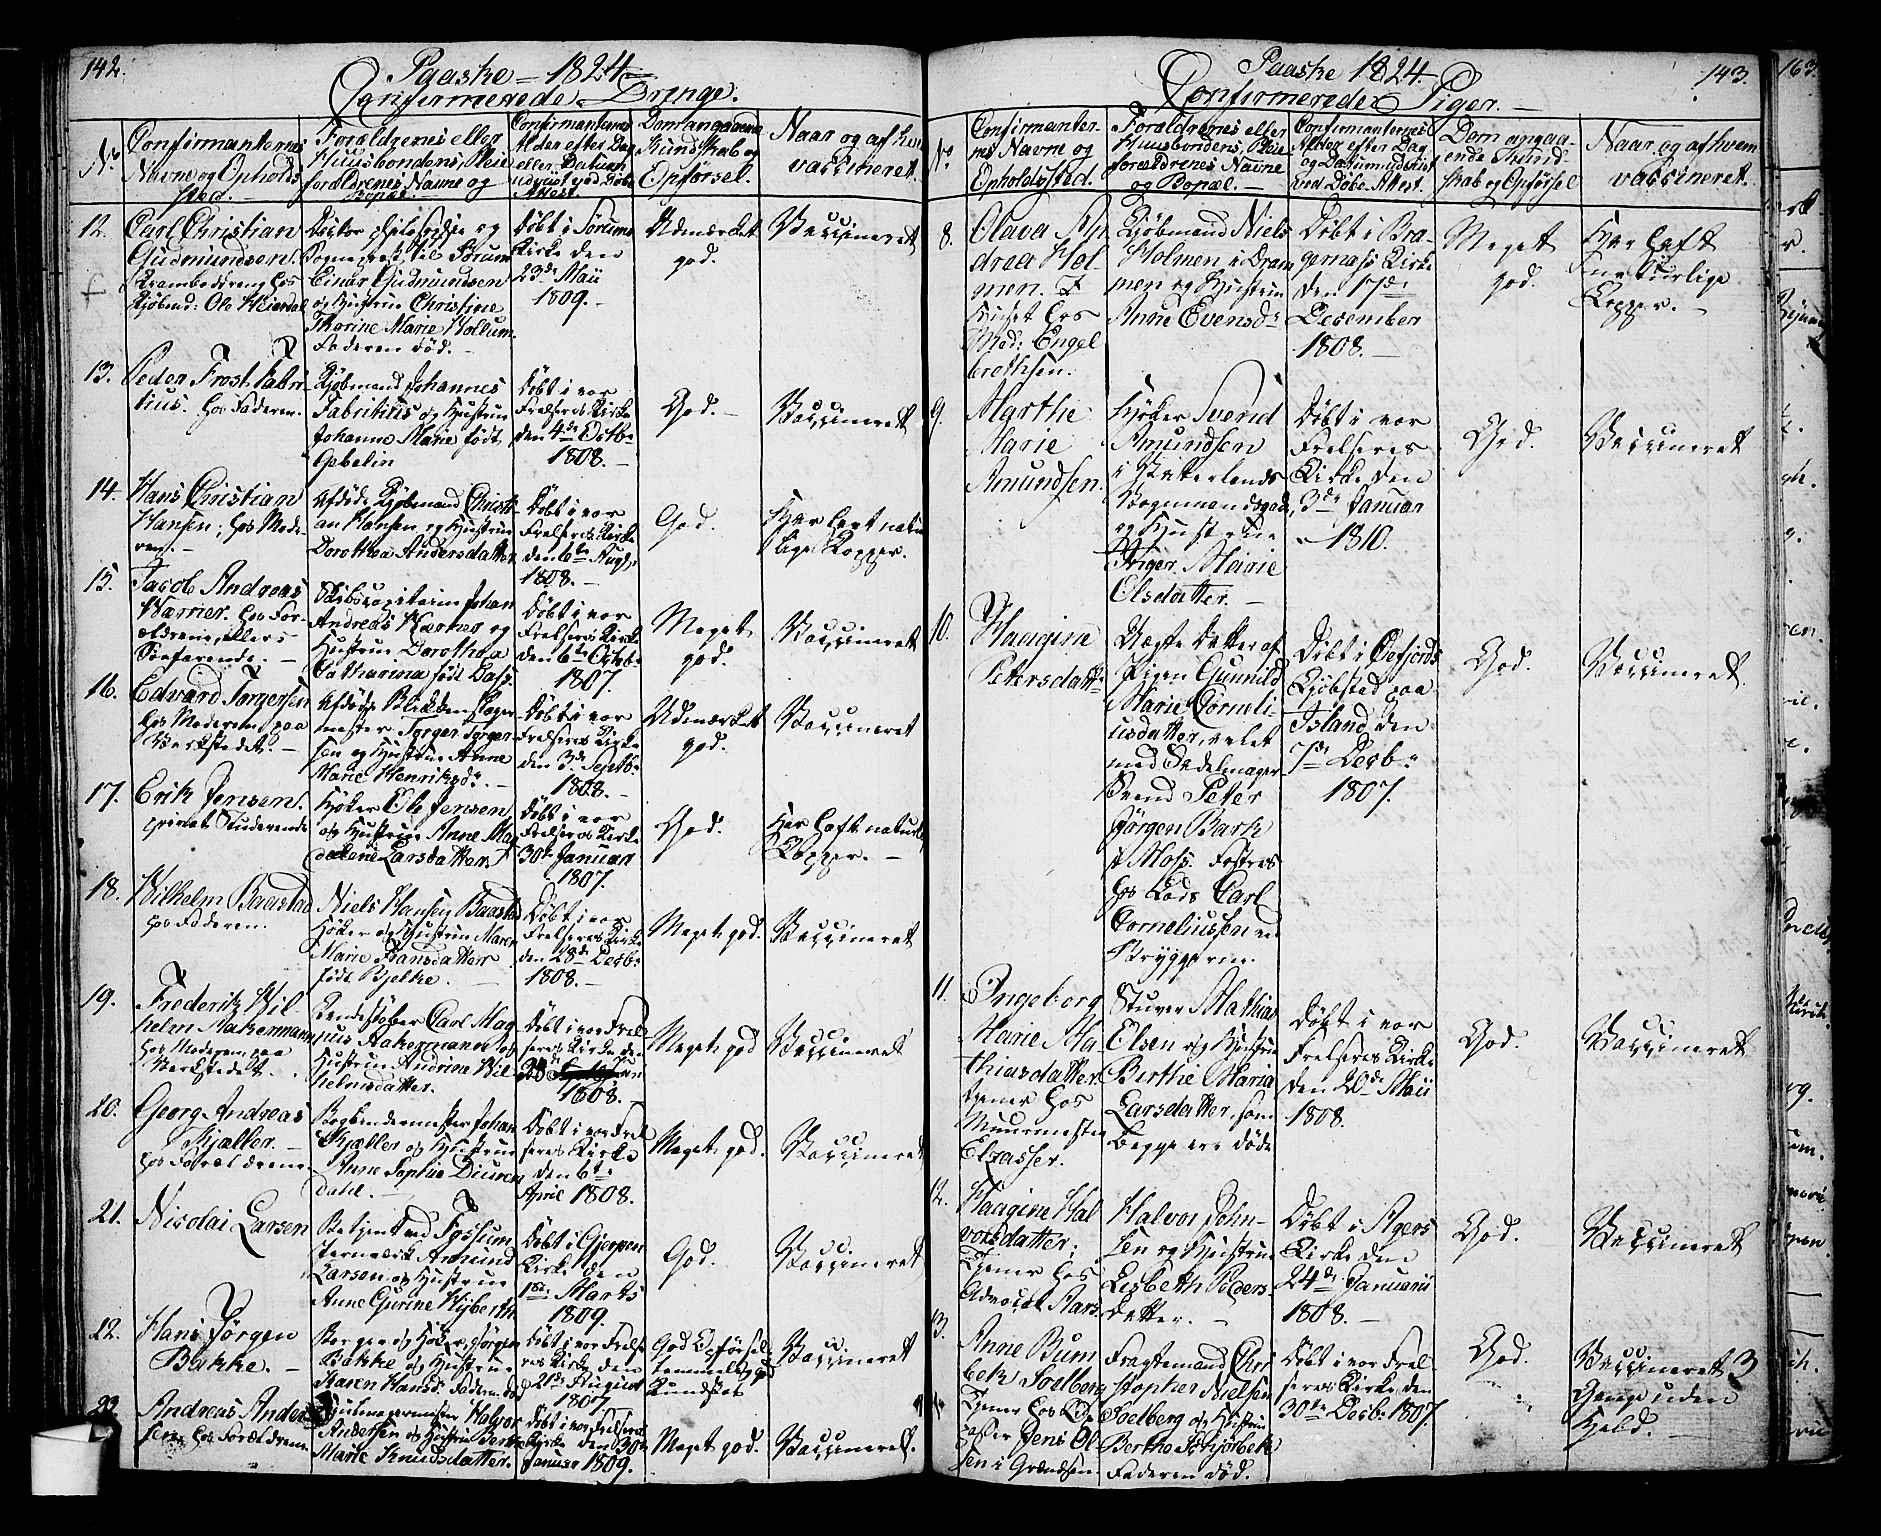 142.
Paaske 1824
Confirmerede Drenge.
No
Confirmanternes
Navne og Opholds
sted.
Forældrenes eller
Huusbondens, Pleie
forældrenes Navne og
Bopæl.
Confirmanternes
Alder efter Dag
eller Datum
udviist ved Døbe
Attest.
Dom angaaende
Kundskab og
Opførsel.
Naar og af hvem
vaccineret.
12.
Carl Christian
Gudmundsen.
Krambeddreng hos
Kjøbmd: Ole Heierdal
Doctor philosophie og
Sognepræst til Sørum
Einar Gudmundsen
og Hustrue Christine
Thorine Marie Hollum.
Faderen død.
Døbt i Sørums
Kirke den
23de Maii
1809.
Udmærket
god.
Vaccineret
13.
Peder Frost Fabri
tius. hos Faderen.
Kjøbmand Johannes
Fabritius og Hustrue
Johanne Marie født
Gebelin
Døbt i vor
Frelseres Kirke
den 4de Octbr
1808.
God.
Vaccineret
14.
Hans Christian
Hansen; hos Mode-
ren.
Afdøde Kjøbmand Christi-
an Hansen og Hustrue
Dorothea Andersdatter
Døbt i vor
Frelseres Kirke
den 6te Augs:
1808.
God.
Har havt natur
lige Kopper.
15.
Jacob Andreas
Warner. hos For-
ældrene, ellers
Søefarende.
Skibscapitaine Johan
Andreas Warner og
Hustrue Dorothea
Catharina født Bass.
Døbt i vor
Frelseres Kirke
den 6te Octobr
1807.
Meget
god.
Vaccineret
16.
Edvard Torgersen
hos Moderen paa
Værkstedet.
Afdøde Blikkenslager
mester Torger Torger-
sen og Hustrue Anne
Marie Henriksdr.
Døbt i vor
Frelseres Kirke
den 3de Septbr
1808.
Udmærket
god.
Vaccineret
17.
Erik Jensen.
privat Studerende
Høker Ole Jensen
og Hustrue Anne Mag
dalene Larsdatter.
Døbt i vor
Frelseres Kirke
30te Januar
1807.
God.
Har havt naturl
Kopper.
18.
Wilhelm Baastad
hos Faderen.
Niels Hansen Baastad
Høker og Hustrue Maren
Marie Fransdatter
født Bjelke.
Døbt i vor
Frelseres Kirke
den 28de Decbr
1808.
Meget god.
Vaccineret
19.
Frederik Wil-
helm Aakermann
hos Moderen paa
Værkstedet.
Rendestøber Carl Mag
nus Aakermann og
Hustrue Andrine Wil-
helmsdatter.
Døbt i vor Frel
seres Kirke den
1808.
Meget god
Vaccineret
20.
Georg Andreas
Kjæller.
hos Forældrene
Bogbindermester Johan
Kjæller og Hustrue
Anne Sophie Diuren
dahl.
Døbt i vor Frel
seres Kirke
den 6te
April 1808.
Meget god.
Vaccineret
21.
Nicolai Larsen
Betjent ved Fossum
Jernværk Amund
Larsen og Hustrue
Anne Gurine Hyberth.
Døbt i Gjerpen
Kirke den
1ste Marts
1809.
God.
Vaccineret
22.
Hans Jørgen
Bakke.
Borger og Høker Jørgen
Bakke og Hustrue
Karen Hansd. Faderen død
Døbt i vor Frelse
res Kirke den
21de August
1807.
God Opførsel
temmelig god
Kundskab
Vaccineret
23
Andreas Ander
sen, hos Forældrene
Hjulmagermester Halvor
Andersen og Hustrue Berthe
Marie Knudsdatter.
Døbt i vor Frelseres
Kirke den 30te
Januar 1809.
Meget god.
Vaccineret.
Paaske 1824.
143.
Confirmerede Piger.
No
Confirmanter-
nes Navne og
Opholdssted.
Forældrenes eller
Huusbondens, Pleie
forældrenes Navne
og Bopæl.
Confirmanternes
Alder efter Dag
og Datum udviist
ved Døbe Attest.
Dom angaa-
ende Kund-
skab og Opførsel
Naar og af hvem
vaccineret.
8.
Olava An
drea Hol-
men.
Huset hos
Mad: Engel
brethsen.
Kjøbmand Niels
Holmen i Dram
men og Hustrue
Anne Evensdr
Døbt i Bra-
gernæss Kirke
den 17de
December
1808.
Meget
god.
Har havt
naturlige
Kopper.
9.
Marthe
Marie
Amundsen.
Høker Svend
Amundsen
i Pæterlands
Vognmandsgade,
og Hustrue
Inger Marie
Elsdatter.
Døbt i vor
Frelseres
Kirke den
3de Januar
1810.
God.
Vaccineret
10.
Haagine
Petersdattr
Uægte Datter af
Pigen Gunnild
Marie Corneli-
usdatter, avlet
med Sadelmager
Svend Peter
Jørgen Bark
i Moss. Fostres
hos Lods Carl
Corneliussen ved
Bryggerne.
Døbt i Øefjords
Kjøbsted paa
Island den
7de Decbr
1807.
God.
Vaccineret.
11.
Ingeborg
Marie Ma-
thiasdatter
tjener hos
Muurmester
Elsasser.
Stuver Mathias
Elsen og Hustrue
Berthe Maria
Larsdatter, som
begge ere døde
Døbt i vor
Frelseres Kirke
den 20de Maii
1808.
God.
Vaccineret
12.
Haagine Hal
vorsdatter;
Tjener hos
Advocat Aars.
Halvor John-
sen og Hustrue
Lisbeth Peders
datter.
Døbt i Agers
Kirke den
24de Januarii
1808.
God.
Vaccineret
13.
Anne Bum
bek Solberg
Tjener hos
Jens Ol
sen i Grændsen.
Fragtemand Chri
stopher Nielsen
Solberg og Hustrue
Berthe Schjørbek
Faderen død.
Døbt i vor Frel
seres Kirke den
30te Decbr 1807.
God.
Vaccineret 3
Gange uden
Held.
163